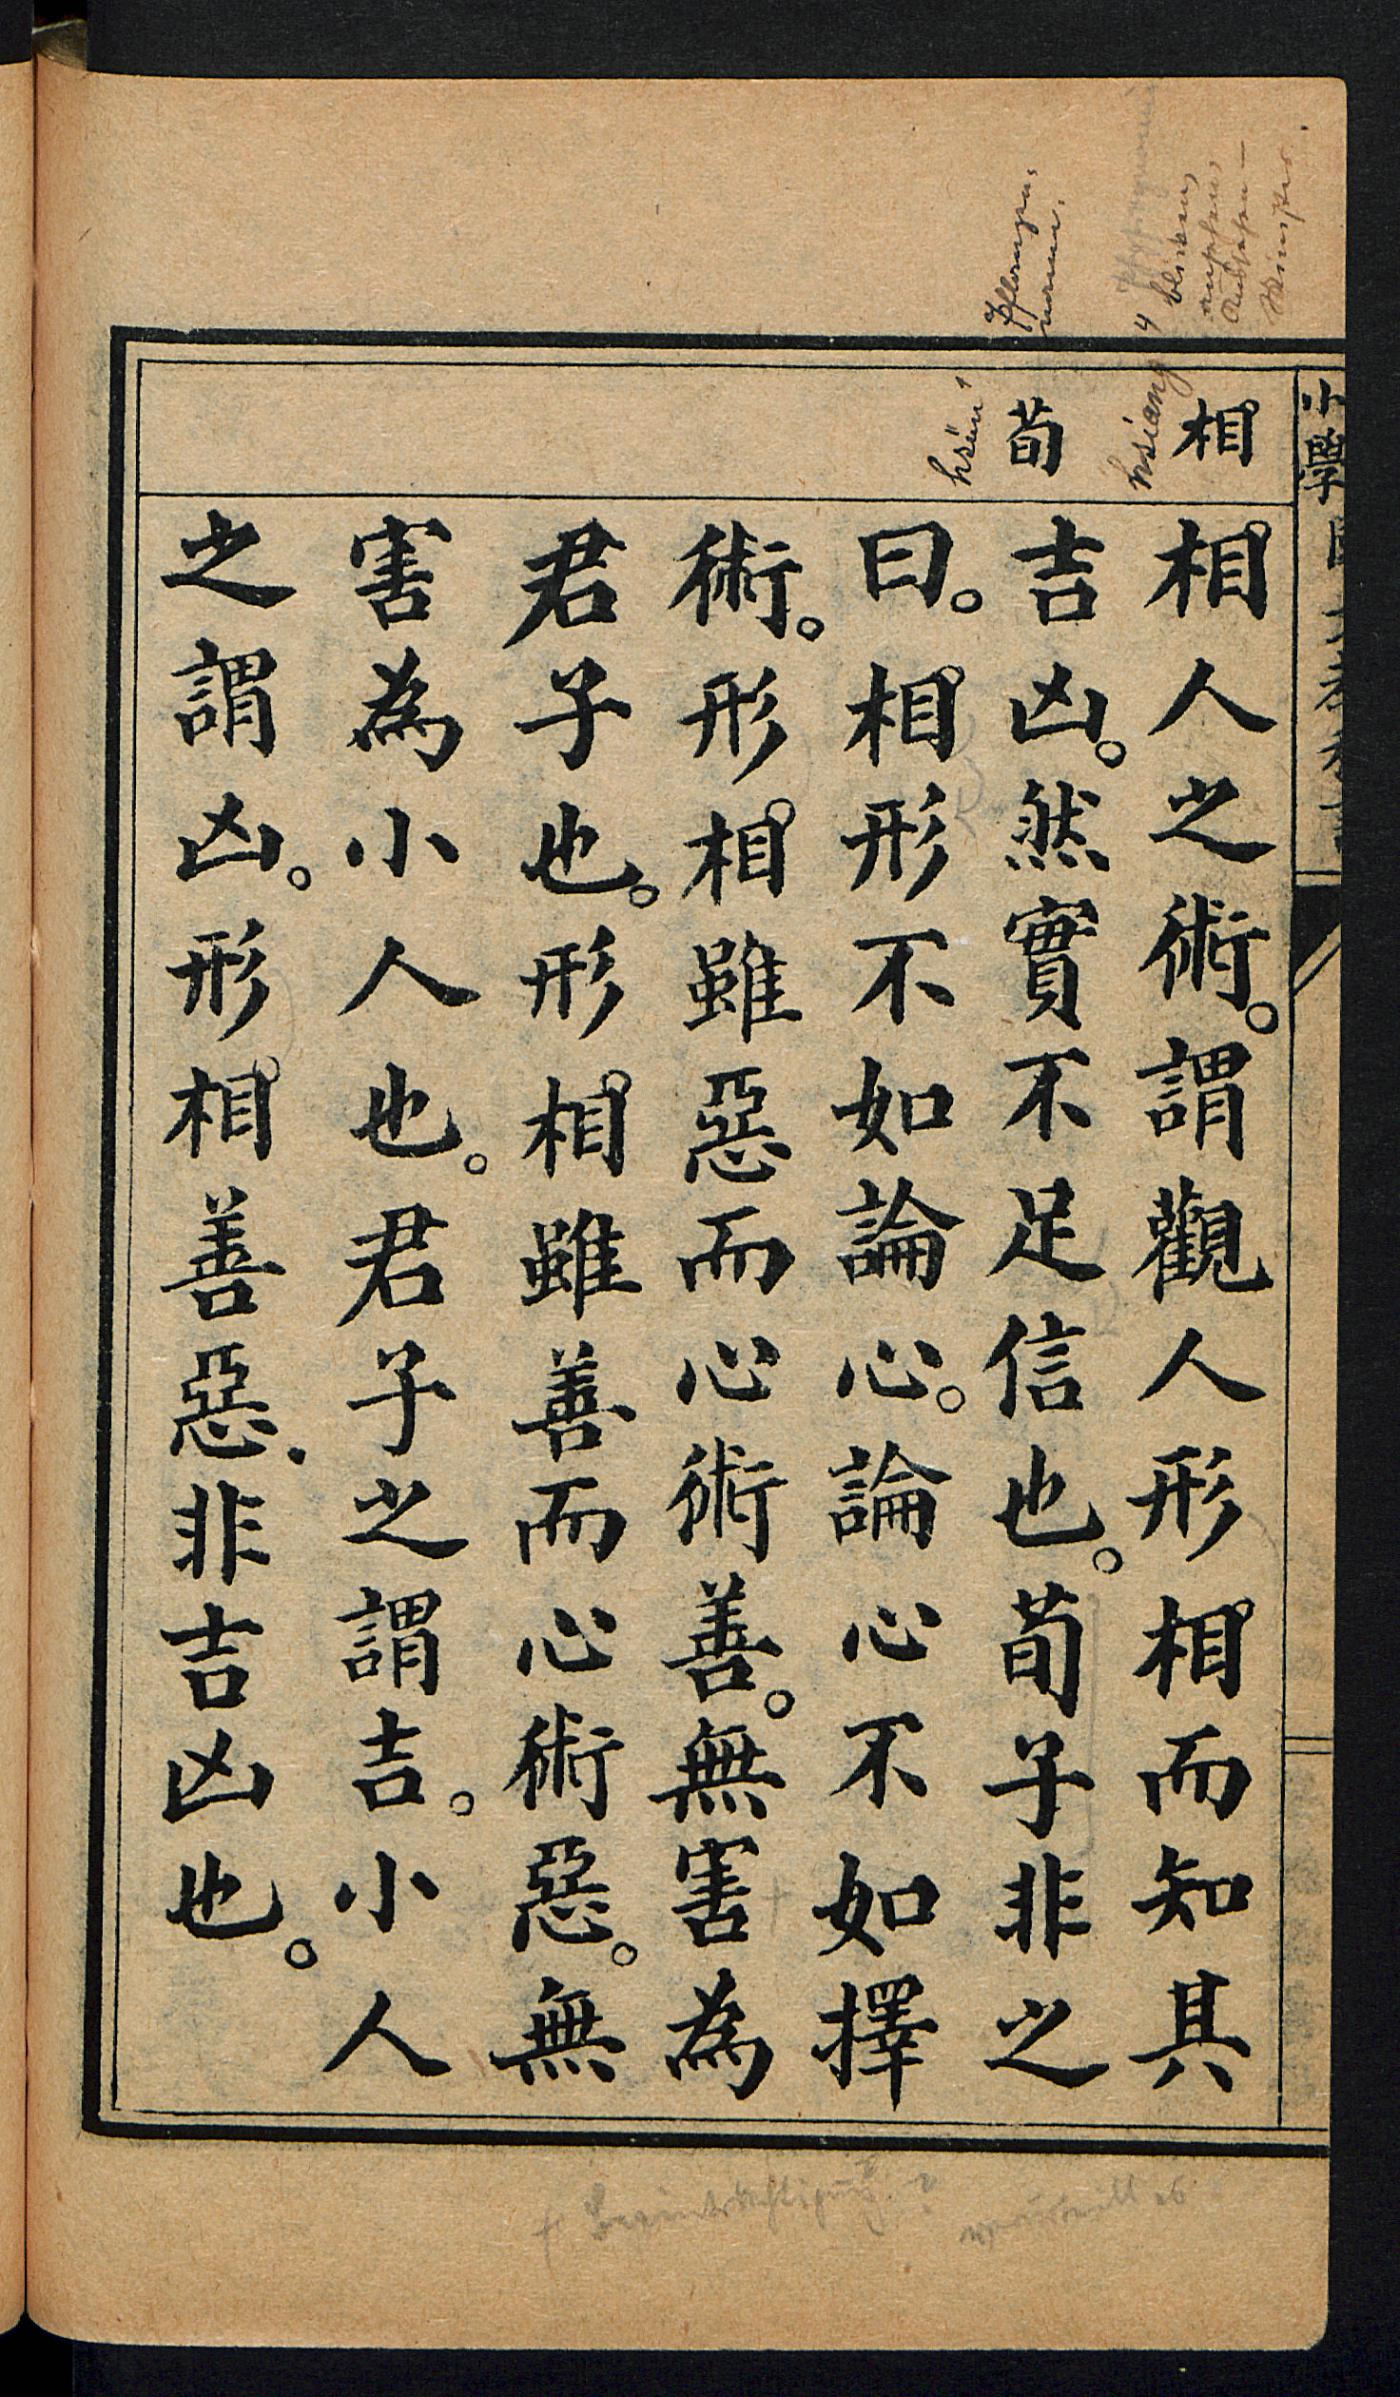 相
荀
hsiang 4
hsün 1
相人之術。謂觀人形相而知其
吉凶。然實不足信也。荀子非之
曰。相形不如論心。論心不如擇
術。形相雖惡而心術善。無害為
君子也。形相雖善而心術惡。無
害為小人也。君子之謂吉。小人
之謂凶。形相善惡.非吉凶也。
小學